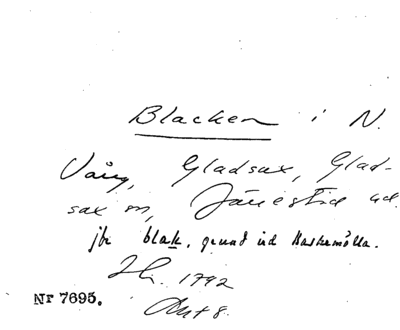 Blacken i N.
Vång, Gladsax, Glad-
sax sn, Järrestad hd.
jfr blak, grund vid Kaskemölla.
Lh. 1792
Akt 8.
Nr 7695.